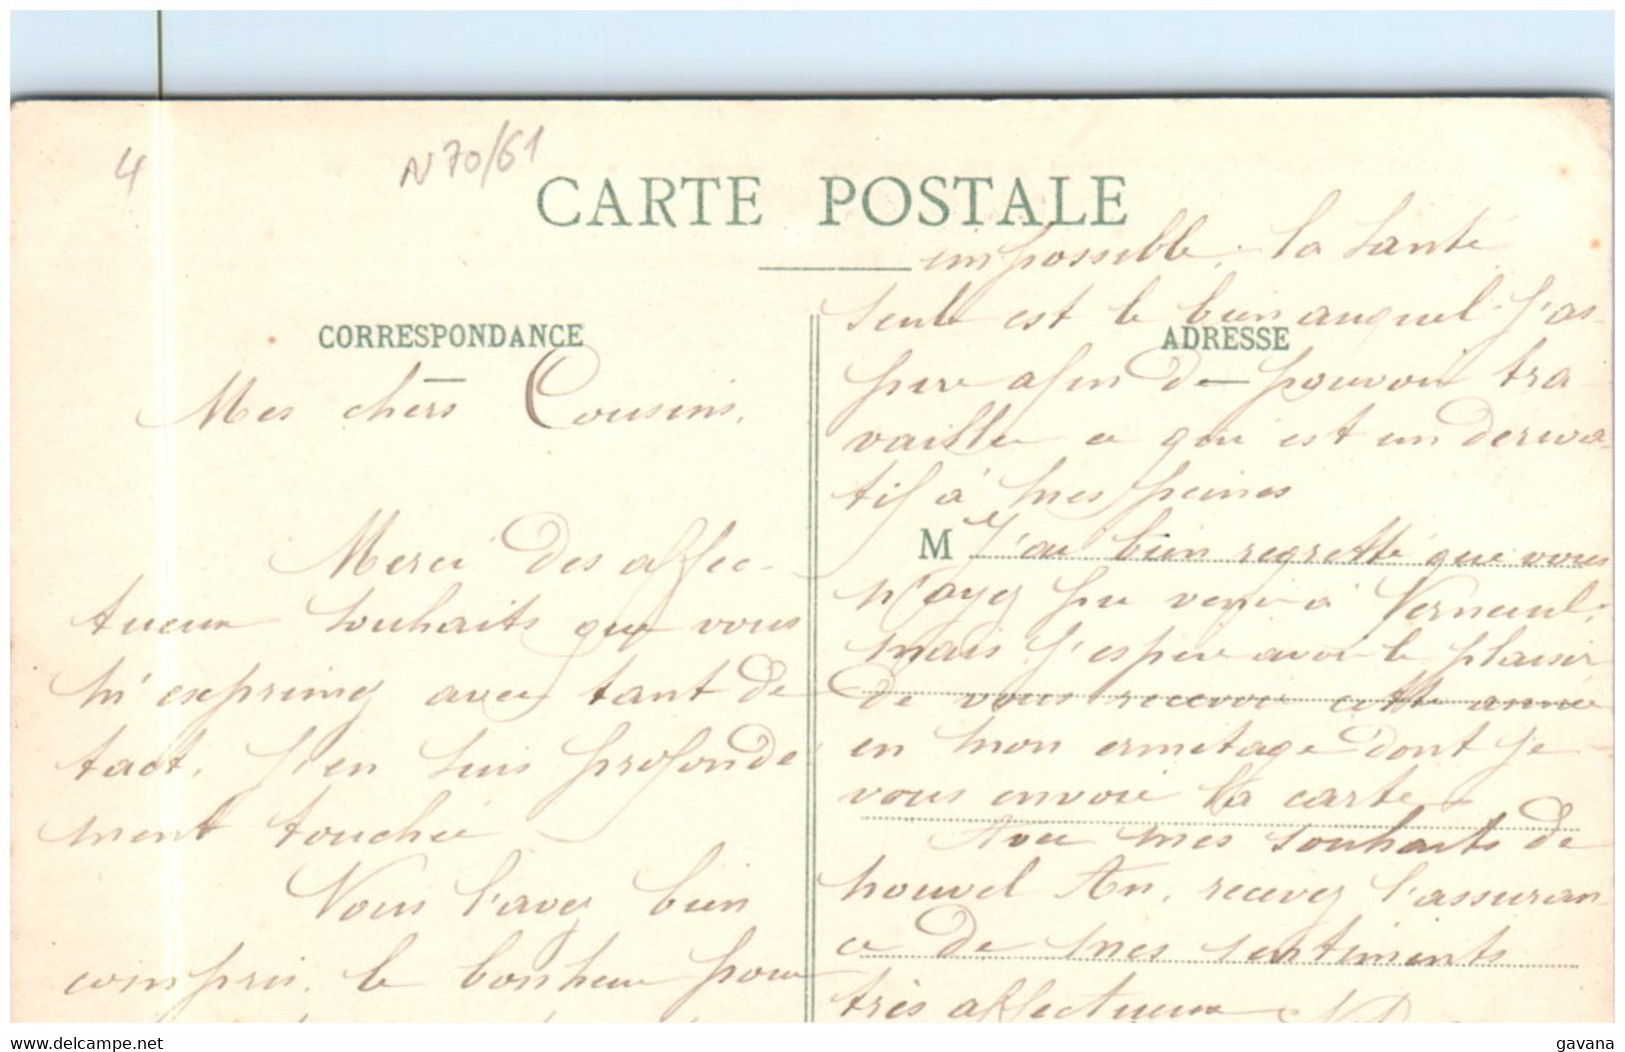 4
N70/61
CARTE POSTALE
CORRESPONDANCE
Mes chers Cousins,
Merci des affec-
tueux souhaits que vous
m'exprimez avec tant de
tact. J'en suis profonde
ment touchée
Vous l'avez bien
compris, le bonheur pour
impossible, la santé
seule est le bien auquel j'as-
ADRESSE
pire afin de pouvoir tra-
vailler ce qui est un deriva-
tif à mes peines
M
J'ai bien regretté que vous
n'ayez pu venir à Verneuil,
mais j'espère avoir le plaisir
de vous recevoir cette année
en mon ermitage dont je
vous envoie la carte
Avec mes souhaits de
nouvel An, recevez l'assuran
ce de mes sentiments
très affectueux
www.delcampe.net
gavana